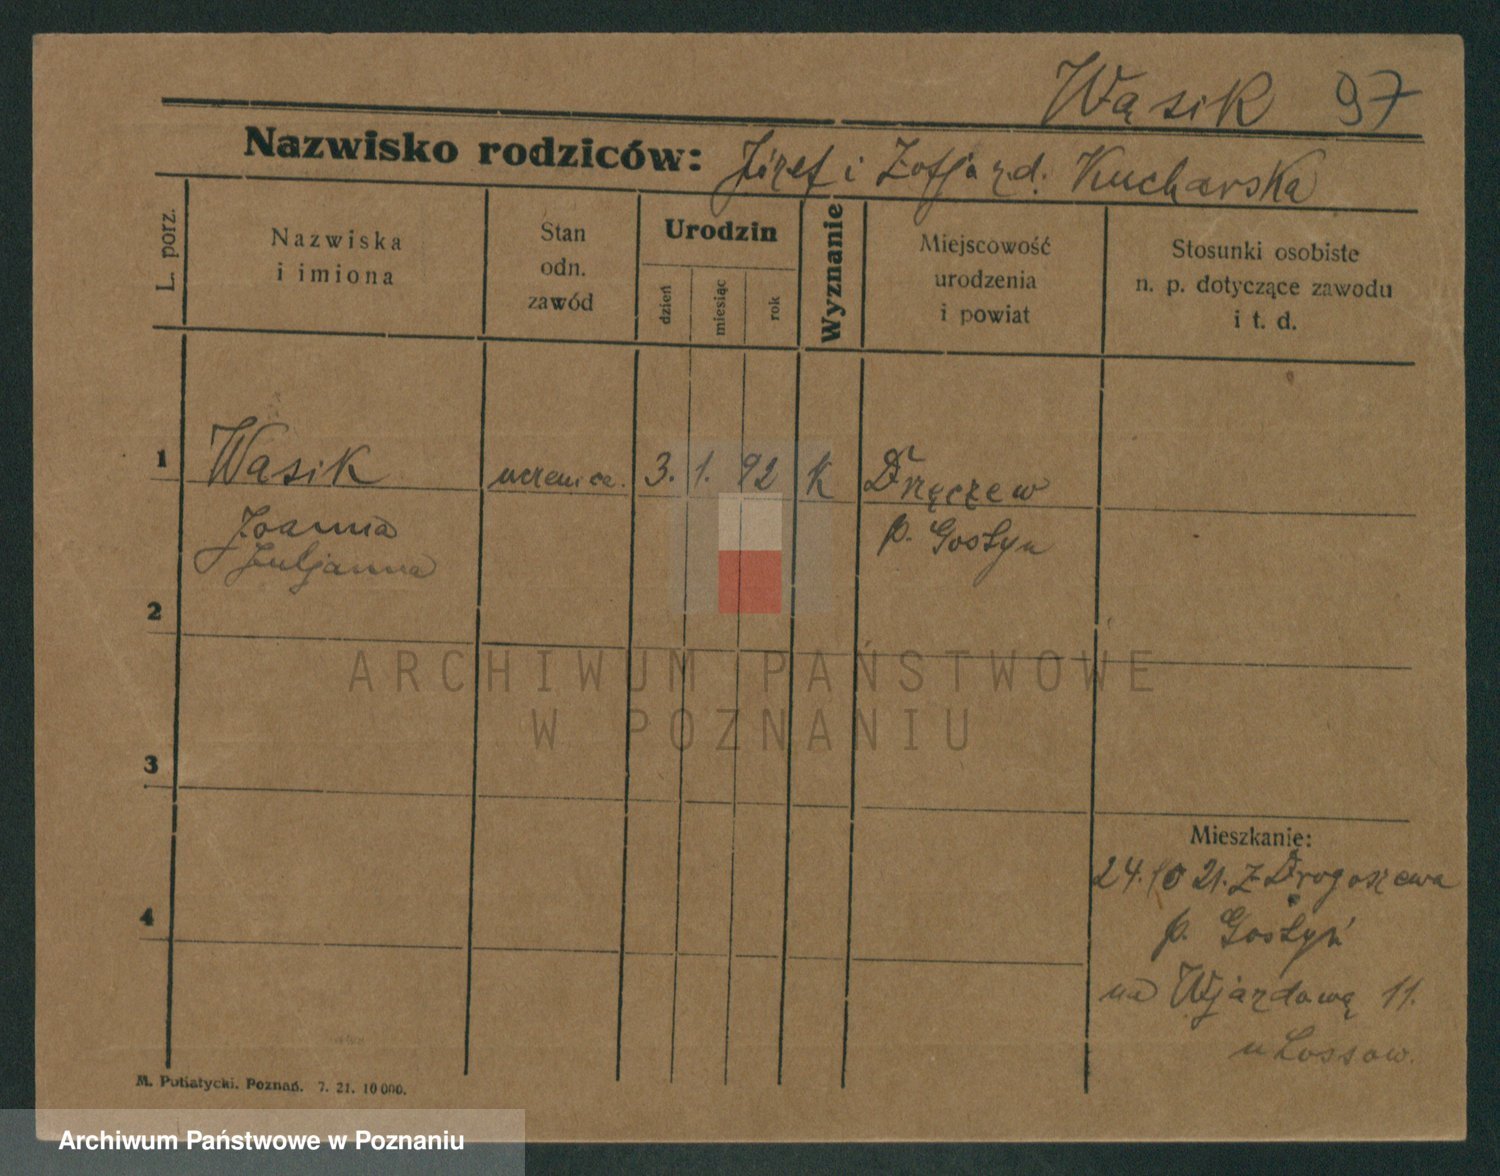 Wąsik 97
Nazwisko rodziców: Józef i Zofja z d. Kucharska
L. porz.
Nazwiska
i imiona
Stan
odn.
zawód
Urodzin
dzień
miesiąc
rok
Wyznanie
Miejscowość
urodzenia
i powiat
Stosunki osobiste
n. p. dotyczące zawodu
i t. d.
1 Wasik uczenica. 3. 1. 92 K Dzięczew
Joanna p. Gostyn
Juljanna
2
ARCHIWUM PAŃSTWOWE
W POZNANIU
3
Mieszkanie:
24. 10 21. z Drogoszewa
4
p. Gostyń
na Wjazdową 11.
u Lossow.
M. Putiatycki. Poznań. 7. 21. 10 000.
Archiwum Państwowe w Poznaniu